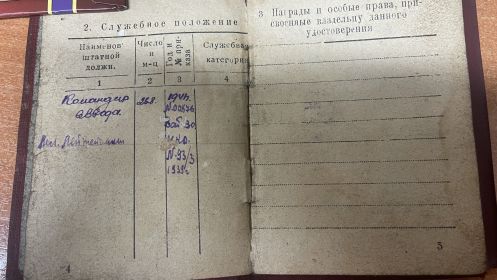 2. Служебное положение
Наименов.
штатной
должн.
Число
и
м-ц
Год и
№ при-
каза
Служебная
категория
1
2
3
4
Командир
взвода
Мл. Лейтенант
1939г
4
3 Награды и особые права, при-
своенные владельцу данного
удостоверения
5